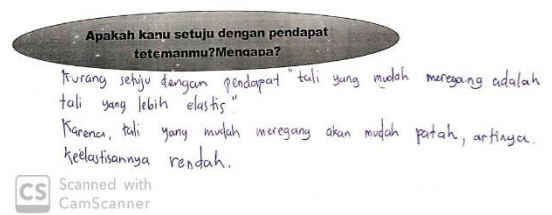 Apakah kanu setuju dengan pendapat
tetemanmu?Mengapa?
Kurang setuju dengan pendapat "tali yang mudah meregang adalah
tali yang lebih elastis"
Karena, tali yang mudah meregang akan mudah patah, artinya
keelastisannya rendah.
CS Scanned with
CamScanner